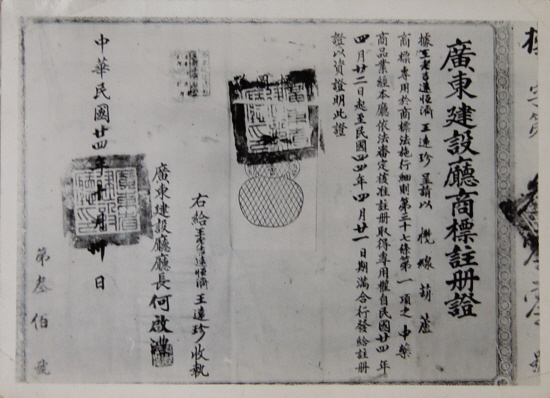 廣東建設廳商標註冊證
據王老吉遠恒濟 王遠珍 呈請以 欖線葫蘆
商標專用於商標法施行細則第三十七條第一項之中藥
商品業經本廳依法審定核准註册取得專用權自民國廿四年
四月廿二日起至民國四四年四月廿一日期滿合行發給註册
證以資證明此證
右給王老吉遠恒濟 王遠珍收執
廣東建設廳廳長何啟澧
中華民國廿四年十月卅日
第叁佰 號